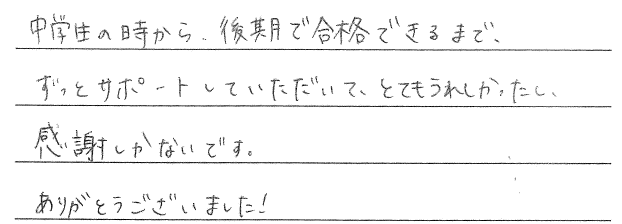 中学生の時から、後期で合格できるまで、
ずっとサポートしていただいて、とてもうれしかったし、
感謝しかないです。
ありがとうございました!